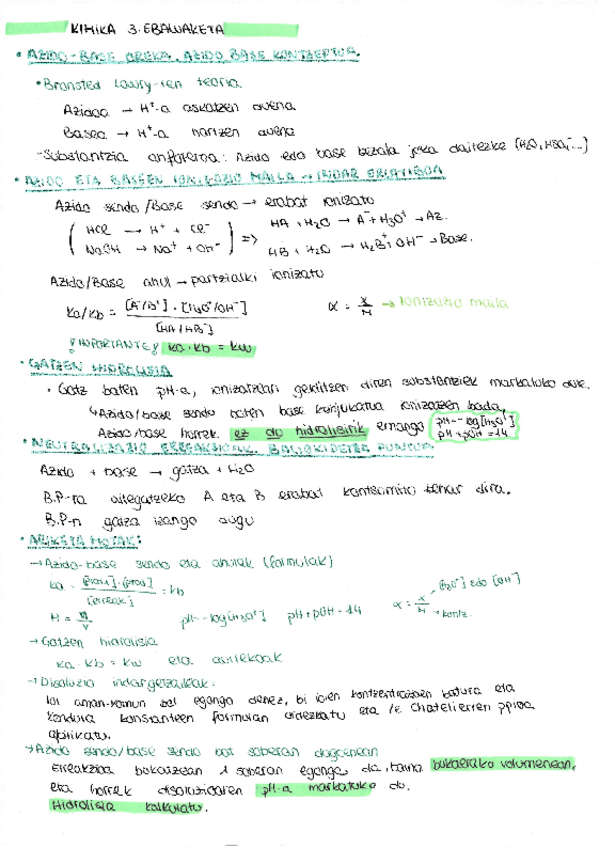 KIMIKA 3. EBALUAKETA
• AZIDO-BASE OREKA. AZIDO BASE KONTZEPTUA.
• Bronsted Lowry-ren teoria.
Azidoa → H⁺-a askatzen duena
Basea → H⁺-a hartzen duena
-Substantzia anfoteroa: Azido edo base bezala joka daitezke (H₂O, HSO₄⁻...)
• AZIDO ETA BASEEN IONIZAZIO MAILA → INDAR ERLATIBOA
Azido sendo/Base sendo → erabat ionizatu
HCl → H⁺ + Cl⁻
NaOH → Na⁺ + OH⁻
=> HA + H₂O → A⁻ + H₃O⁺ → Az.
HB + H₂O → H₂B⁺ + OH⁻ → Base.
Azido/Base ahul → partzialki ionizatu
Ka/Kb = [A⁻/B⁺] · [H₃O⁺/OH⁻] / [HA/HB⁻]
α = x/M → Ionizazio maila
¡IMPORTANTE! Ka · Kb = Kw
• GATZEN HIDROLISIA
• Gatz baten pH-a, ionizatzean gelditzen diren substantziek markatuko dute.
↳ Azido/base sendo baten base konjukatua ionizatzen bada,
Azido/base horrek ez du hidrolisirik emango
pH = -log[H₃O⁺]
pH + pOH = 14
• NEUTRALIZAZIO ERREAKZIOAK. BALIOKIDETZA PUNTUA.
Azido + base → gatza + H₂O
B.P-ra ailegatzeko A eta B erabat kontsumitu behar dira.
B.P-n gatza izango dugu
• ARIKETA MOTAK:
→ Azido-base sendo eta ahulek (formulak)
Ka = [prod] · [prod] / [erreak] = Kb
α = x/M → [H₃O⁺] edo [OH⁻] → kontz.
M = n/V pH = -log[H₃O⁺] pH + pOH = 14
→ Gatzen hidrolisia
Ka · Kb = Kw eta aurrekoak
→ Disoluzio indargetzaileak:
Ioi aman-komun bat egongo denez, bi ioien kontzentrazioen batura eta
kendura konstanteen formulan ordezkatu eta Le Chatelierren ppioa
aplikatu.
→ Azido sendo/base sendo bat soberan dagoenean
Erreakzioa bukatzean 1 soberan egongo da, baina bukaerako volumenean,
eta horrek disoluzioaren pH-a markatuko du.
Hidrolisia kalkulatu.